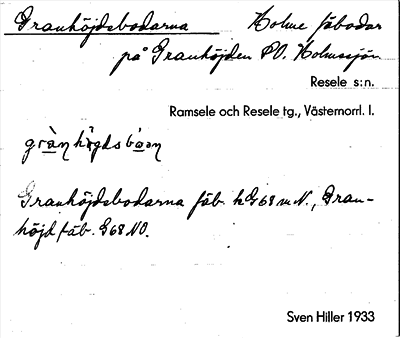 Granhöjdsbodarna Holme fäbodar
på Granhöjden SO. Holmsjön
Resele s:n.
Ramsele och Resele tg., Västernorrl. l.
grànhö̀gdsbòan
Granhöjdsbodarna fäb. hG68mN., Gran-
höjd fäb. G68NO.
Sven Hiller 1933